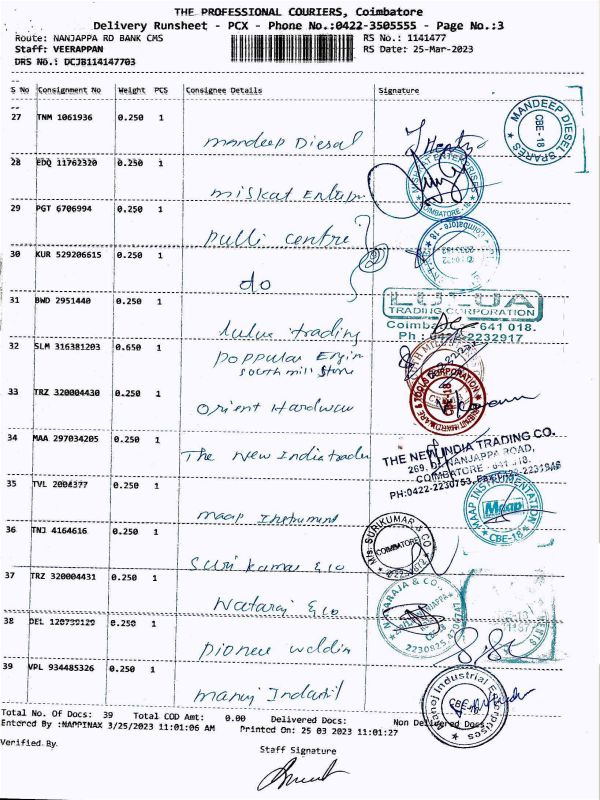 THE PROFESSIONAL COURIERS, Coimbatore
Delivery Runsheet - PCX - Phone No.:0422-3505555 - Page No.:3
Route: NANJAPPA RD BANK CMS
RS No.: 1141477
Staff: VEERAPPAN
RS Date: 25-Mar-2023
DRS No.: DCJB114147703
S No Consignment No Weight PCS Consignee Details Signature
27 TNM 1061936 0.250 1
Mandeep Diesal
MANDEEP DIESEL SPARES CBE-18
28 EDQ 11762320 0.250 1
Miskat Enterp
MISKAT ENTERPRISES COIMBATORE - 18
29 PGT 6706994 0.250 1
Pulli centre
30 KUR 529206615 0.250 1
do
31 BWD 2951440 0.250 1
LULUA
TRADING CORPORATION
Coimbatore - 641 018.
Ph : 0422-2232917
lulua trading
32 SLM 316381203 0.650 1
poppular Engin
south mill store
33 TRZ 320004430 0.250 1
Orient Hardwar
ORIENT HARDWARE & TOOLS CORPORATION
34 MAA 297034205 0.250 1
The New India trader
THE NEW INDIA TRADING CO.
269, D, NANJAPPA ROAD,
COIMBATORE - 641 018.
PH:0422-2230753,
35 TVL 2004377 0.250 1
Maap Instrument
MAAP INSTRUMENTATION Maap CBE-18
36 TNJ 4164616 0.250 1
Suri kumar & co
M/s. SURIKUMAR & CO COIMBATORE
37 TRZ 320004431 0.250 1
Nataraj & co
NATARAJA & CO
38 DEL 120739129 0.250 1
pioneer weldin
39 VPL 934485326 0.250 1
Manoj Industril
Manoj Industrial Enterprises CBE-18
Total No. Of Docs: 39 Total COD Amt: 0.00 Delivered Docs: Non Delivered Docs:
Entered By :NAPPINAX 3/25/2023 11:01:06 AM Printed On: 25 03 2023 11:01:27
Verified By.
Staff Signature